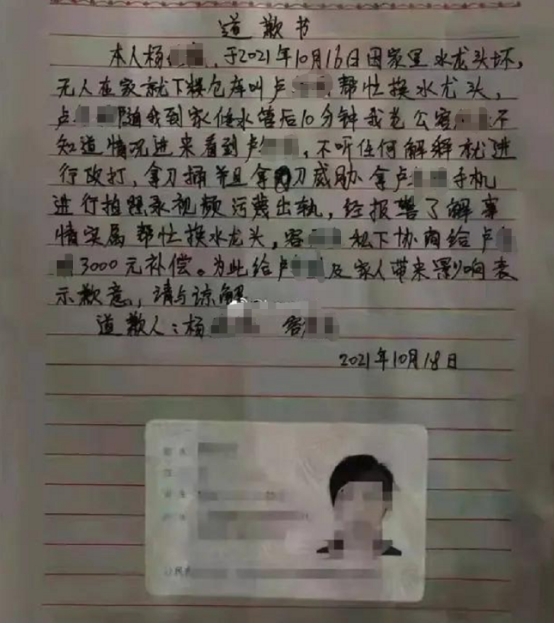 道歉书
本人杨 ,于2021年10月16日因家里水龙头坏,
无人在家就下楼仓库叫卢 帮忙换水龙头,
卢 随我到家修水管后10分钟我老公客 不
知道情况进来看到卢 ,不听任何解释就进
行攻打,拿刀捅并且拿 刀威胁拿卢 手机
进行拍照录视频污蔑出轨,经报警了解事
情实属帮忙换水龙头,客 私下协商给卢
3000元补偿。为此给卢 及家人带来影响表
示歉意,请与谅解
道歉人:杨 客
2021年10月18日